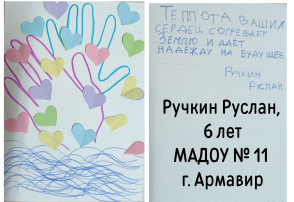 ТЕПЛОТА ВАШИХ
СЕРДЕЦ СОГРЕВАЕТ
ЗЕМЛЮ И ДАЁТ
НАДЕЖДУ НА БУДУЩЕЕ.
РУЧКИН
РУСЛАН
Ручкин Руслан,
6 лет
МАДОУ № 11
г. Армавир